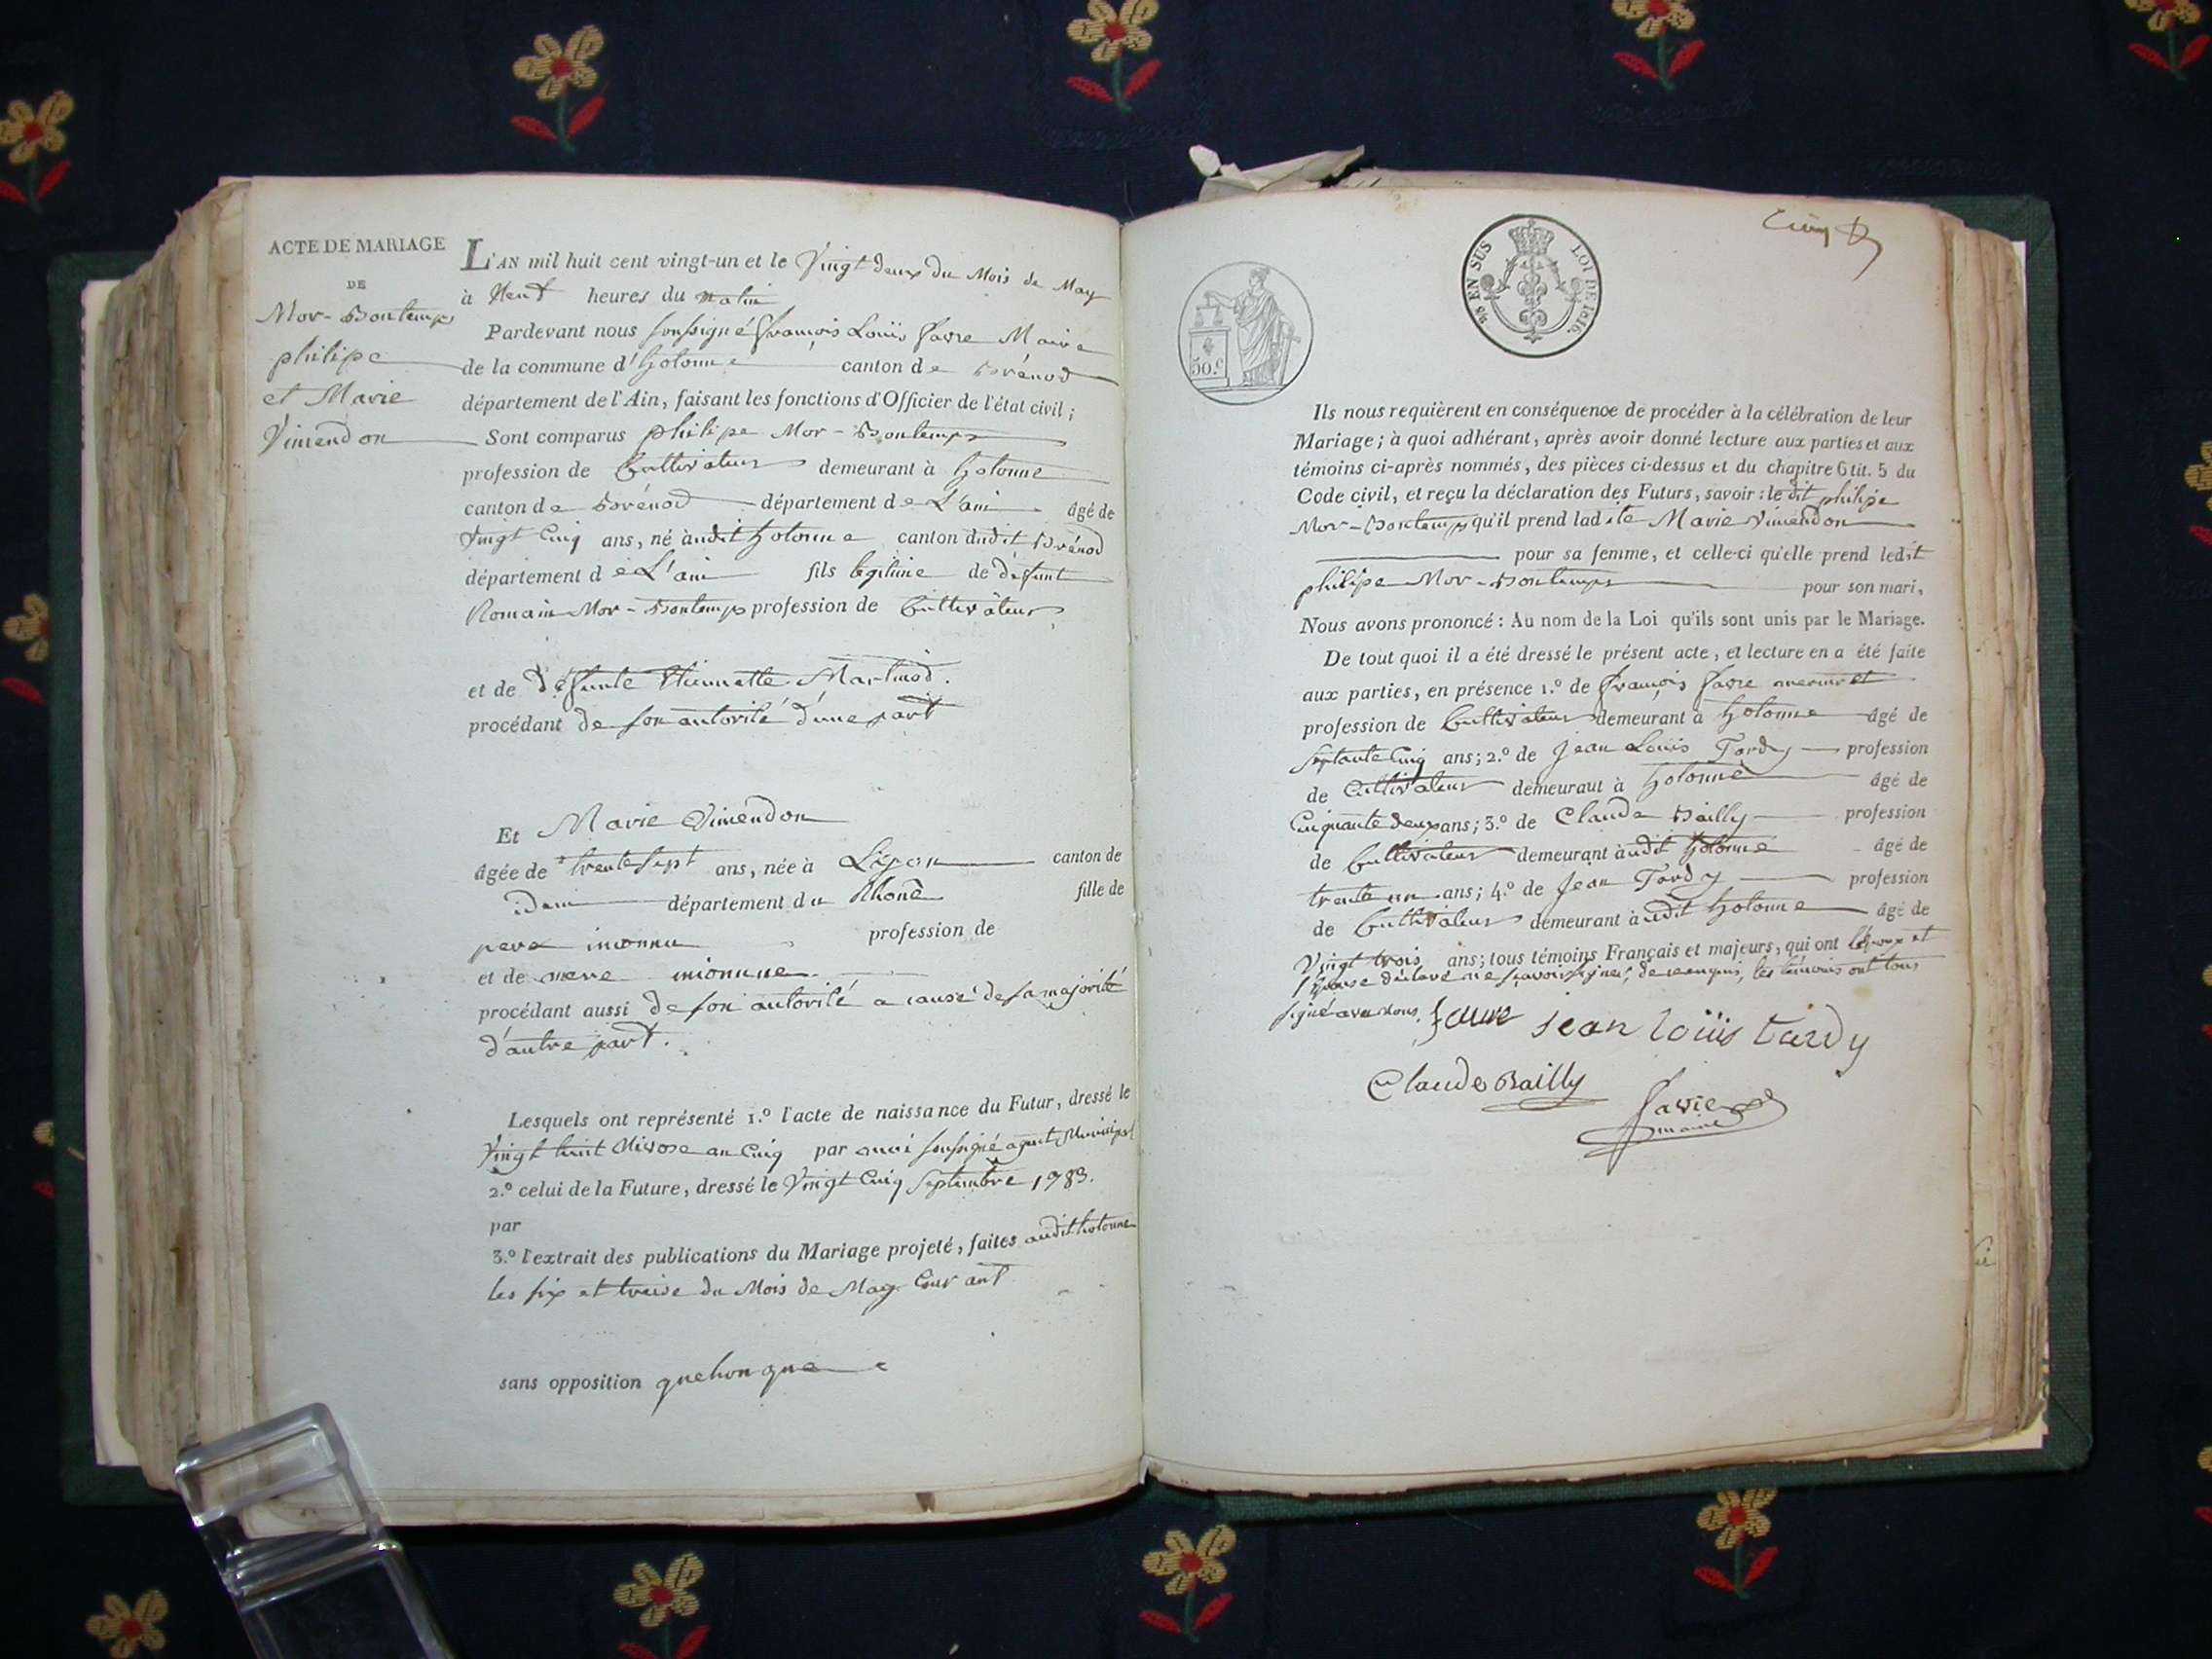 ACTE DE MARIAGE
DE
Mor-Bontemps
philipe
et Marie
Vimendon
L'AN mil huit cent vingt-un et le Vingt deux du Mois de May
à Neuf heures du matin
Pardevant nous soussigné françois Louïs favre Maire
de la commune d'hotonne canton de Brénod
département de l'Ain, faisant les fonctions d'Officier de l'état civil;
Sont comparus philipe Mor-Bontemps
profession de Cultivateur demeurant à hotonne
canton de Brénod département de L'ain âgé de
Vingt Cinq ans, né audit hotonne canton dudit Brénod
département de L'ain fils légitime de défunt
Romain Mor-Bontemps profession de Cultivateur
et de défunte thiennette Martinod.
procédant de son autorité d'une part
Et Marie Vimendon
âgée de trente sept ans, née à Lyon canton de
idem département du Rhone fille de
pere inconnu profession de
et de mere inconnue
procédant aussi de son autorité a cause de sa majorité
d'autre part.
Lesquels ont représenté 1.º l'acte de naissance du Futur, dressé le
Vingt huit Nivose an Cinq par moi soussigné agent Municipal
2.º celui de la Future, dressé le Vingt Cinq Septembre 1783.
par
3.º l'extrait des publications du Mariage projeté, faites audit hotonne
les six et treise du Mois de May Courant
sans opposition quelconque
50.c
25 EN SUS LOI DE 1816.
Ils nous requièrent en conséquence de procéder à la célébration de leur
Mariage; à quoi adhérant, après avoir donné lecture aux parties et aux
témoins ci-après nommés, des pièces ci-dessus et du chapitre 6 tit. 5 du
Code civil, et reçu la déclaration des Futurs, savoir: le dit philipe
Mor-Bontemps qu'il prend ladite Marie Vimendon
pour sa femme, et celle-ci qu'elle prend ledit
philipe Mor-Bontemps pour son mari,
Nous avons prononcé: Au nom de la Loi qu'ils sont unis par le Mariage.
De tout quoi il a été dressé le présent acte, et lecture en a été faite
aux parties, en présence 1.º de françois favre
profession de Cultivateur demeurant à hotonne âgé de
septante Cinq ans; 2.º de Jean Louïs Tardy profession
de Cultivateur demeurant à hotonne âgé de
Cinquante deux ans; 3.º de Claude Bailly profession
de Cultivateur demeurant audit hotonne âgé de
trente un ans; 4.º de Jean Tardy profession
de Cultivateur demeurant audit hotonne âgé de
Vingt trois ans; tous témoins Français et majeurs, qui ont l'époux et
l'épouse déclaré ne sçavoir signer, de ce enquis, les témoins ont tous
signé avec nous. favre jean loüis tardy
Claude Bailly
favre
maire